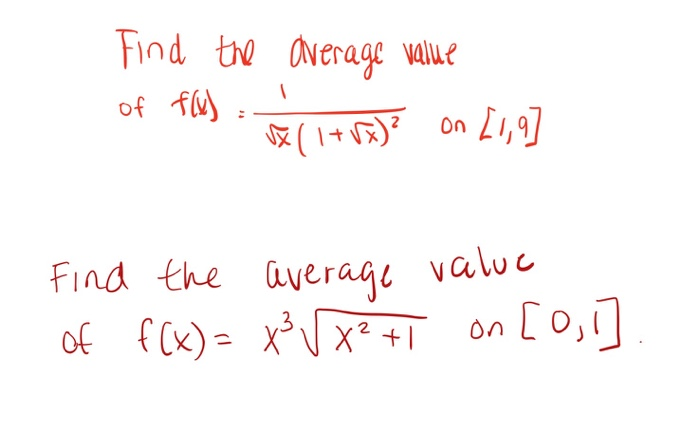 Find the average value
of f(x) = 1/(√x(1+√x)²) on [1,9]
Find the average value
of f(x) = x³√(x²+1) on [0,1].